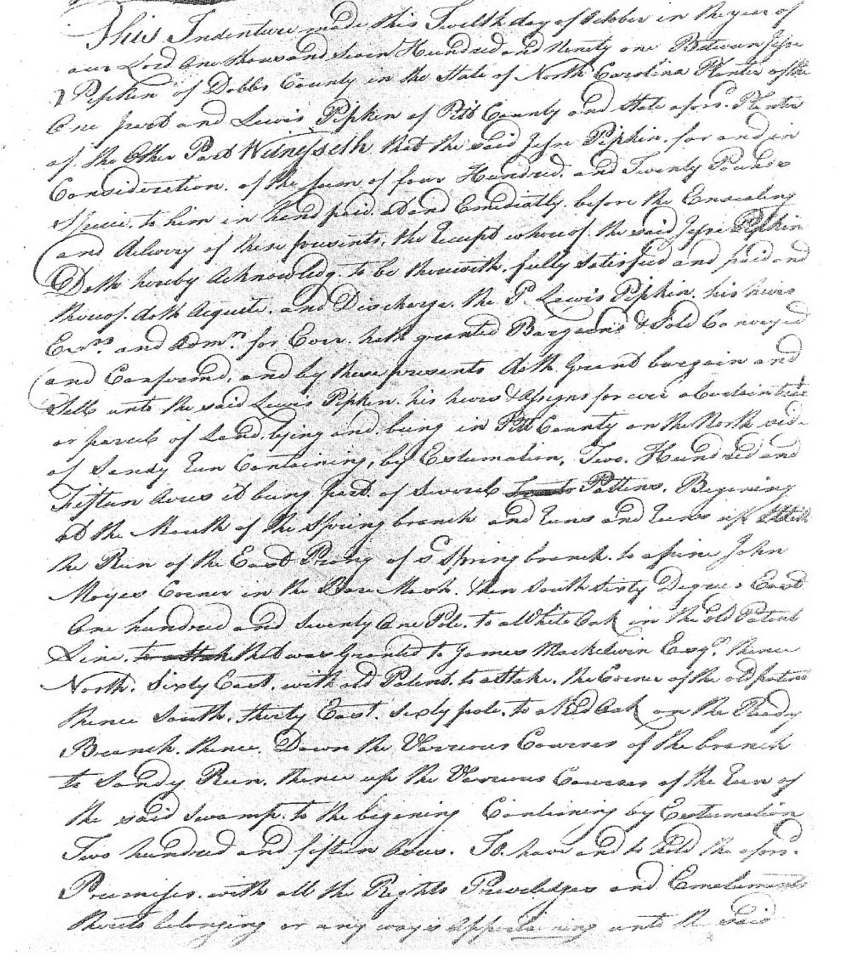 This Indenture made this Twelth day of October in the year of
our Lord One thousand Seven Hundred and Ninety one Between Jesse
Pipkin of Dobbs County in the State of North Carolina Planter of the
One part and Lewis Pipkin of Pitt County and State afors. Planter
of the Other Part Witnesseth that the said Jesse Pipkin. for and in
Consideration. of the sum of four Hundred. and Twenty Pounds
Specie. to him in hand paid. At and Emediatly. before the Ensealing
and delivery of these presents, the Receipt whereof. the said Jesse Pipkin
Doth hereby Acknowledg. to be therewith. fully Satisfied and paid and
thereof. doth Acquete. and Discharge. the Sd Lewis Pipkin. his heirs
Exrs. and Admrs. for Ever. hath granted Bargeon'd & Sold Conveyed
and Confirmed, and by these presents doth. Grant bargain and
Sell unto the said Lewis Pipkin. his heirs & Assigns for ever a Certain
or parcels of Land. lying and. being in Pitt County on the North side
of Sandy Run Containing, by Estumation, Two. Hundred and
Fifteen Acres it being part. of Several Pattens. Begening
at the Mouth of the Spring branch and Runs and Runs up
the Run of the East Prong of sd Spring branch. to a pine John
Moyes Corner in the Bare Mash. then South sixty Degrees East
One hundred and Seventy One Pole. to a White Oak in the Old Patent
Line. that was Granted to James Mackelwin Esqr. thence
North. Sixty East. with old Patent. to a Stake. the Corner of the old patent
thence South. thirty East. Sixty pole. to a Red Oak on the Reedy
Branch. thence. Down the Various Courses of the branch
to Sandy Run. thence up the Various Courses of the Run of
the said Swamp. to the begening Contioning by Estumation
Two hundred and fifteen Acres. To have and to hold the afors.
Premises. with all the Rights Priveledges and Emeluments
thereto belonging or any ways appertaining unto the said